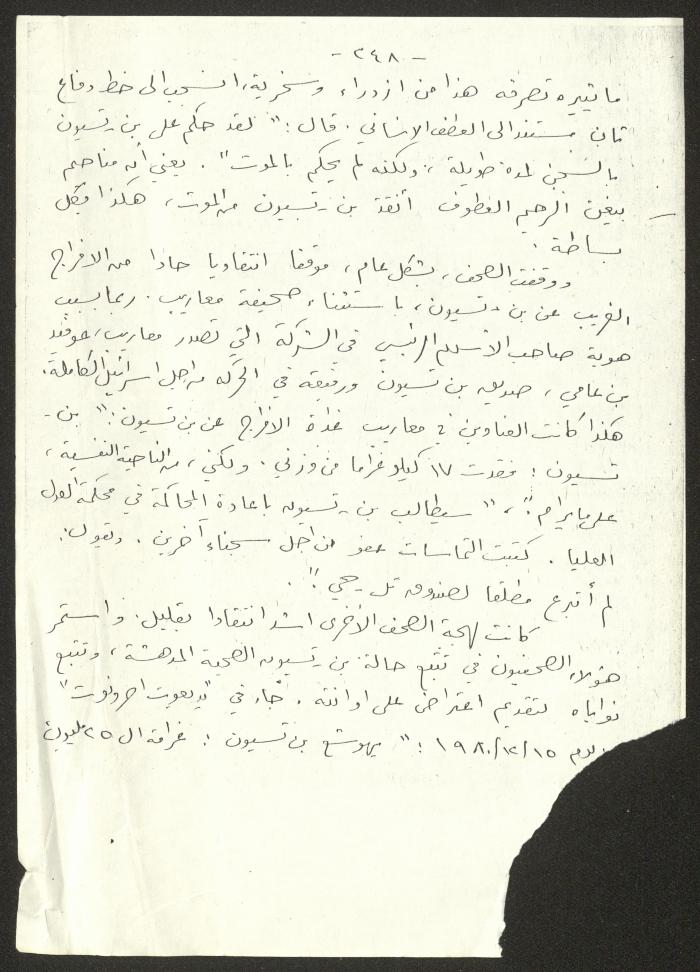 - ٢٤٨ -
ما تثيره تصرفه هذا من ازدراء وسخرية، انسحب الى خط دفاع
ثان مستندا الى العطف الانساني. قال: "لقد حكم على بن-تسيون
بالسجن لمدة طويلة، ولكنه لم يحكم بالموت". يعني أن مناحم
بيغن الرحيم العطوف أنقذ بن-تسيون من الموت، هكذا بكل
بساطة.
ووقفت الصحف، بشكل عام، موقفا انتقاديا حادا من الافراج
الغريب عن بن-تسيون، باستثناء صحيفة معاريب. ربما بسبب
هوية صاحب الاسهم الرئيسي في الشركة التي تصدر معاريب،
بن عامي، صديق بن تسيون ورفيقه في الحركة من اجل اسرائيل الكاملة.
هكذا كانت العناوين في معاريب غداة الافراج عن بن تسيون: "بن-
تسيون: فقدت ١٧ كيلو غراما من وزني. ولكني، من الناحية النفسية،
على ما يرام"، "سيطالب بن-تسيون باعادة المحاكمة في محكمة العدل
العليا. كتبت التماسات عفو من اجل سجناء آخرين. وتقول:
لم أتبرع مطلقا لصندوق تل-حي".
كانت لهجة الصحف الأخرى اشد انتقادا بقليل. واستمر
هؤلاء الصحفيون في تتبع حالة بن-تسيون الصحية المدهشة، وتتبع
نواياه لتقديم اعتراض على ادانته. جاء في "يديعوت احرونوت"
يوم ١٥/١٢/١٩٨٠: "يهوشع بن تسيون: غرامة ال ٢٥ مليون